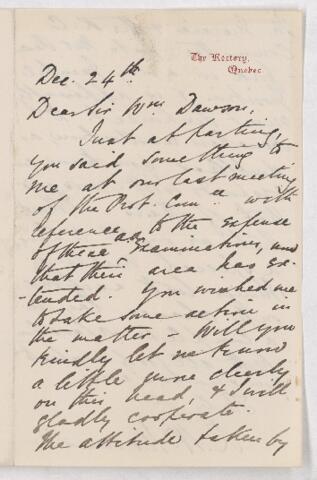 The Rectory,
Quebec
Dec. 24th
Dear Sir Wm Dawson,
Just at parting,
you said something to
me at our last meeting
of the Prot. Comee with
reference to the expense
of these Examinations, now
that their area has ex-
-tended. You wished me
to take some action in
the matter - Will you
kindly let me know
a little more clearly
on this head, & I will
gladly cooperate.
The attitude taken by